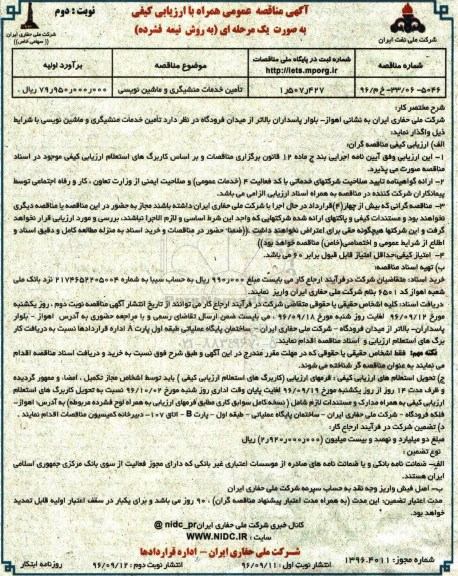 آگهی مناقصه عمومی همراه با ارزیابی کیفی
به صورت یک مرحله ای (به روش نیمه فشرده)
نوبت : دوم
شرکت ملی نفت ایران
شرکت ملی حفاری ایران
(( سهامی خاص ))
شماره مناقصه
شماره ثبت در پایگاه ملی مناقصات
http://iets.mporg.ir
موضوع مناقصه
برآورد اولیه
۵۰۴۶-۳۳/۰۶-خ م/۹۶
۱٫۵۰۷٫۴۲۷
تأمین خدمات منشیگری و ماشین نویسی
۷۹٫۹۵۰٫۰۰۰٫۰۰۰ ریال .
شرح مختصر کار:
شرکت ملی حفاری ایران به نشانی اهواز- بلوار پاسداران بالاتر از میدان فرودگاه در نظر دارد تأمین خدمات منشیگری و ماشین نویسی با شرایط
ذیل واگذار نماید:
الف) ارزیابی کیفی مناقصه گران:
۱- این ارزیابی وفق آیین نامه اجرایی بند ج ماده ۱۲ قانون برگزاری مناقصات و بر اساس کاربرگ های استعلام ارزیابی کیفی موجود در اسناد
مناقصه صورت می پذیرد.
۲- ارائه گواهینامه تایید صلاحیت شرکتهای خدماتی با کد فعالیت ۴ (خدمات عمومی) و صلاحیت ایمنی از وزارت تعاون ، کار و رفاه اجتماعی توسط
پیمانکاران شرکت کننده در مناقصه به همراه اسناد ارزیابی الزامی می باشد.
۳- مناقصه گرانی که بیش از چهار(۴)قرارداد در حال اجرا با شرکت ملی حفاری ایران داشته باشند مجاز به حضور در این مناقصه یا مناقصه دیگری
نخواهند بود و مستندات کیفی و پاکتهای ارائه شده شرکتهایی که واجد این شرط اساسی و لازم الاجرا نباشند، بررسی و مورد ارزیابی قرار نخواهد
گرفت و این شرکتها هیچگونه حقی برای اعتراض نخواهند داشت .((ضمنا؛ حضور در مناقصات و خرید اسناد به منزله مطالعه کامل و دقیق اسناد و
اطلاع از شرایط عمومی و اختصاصی(خاص) مناقصه خواهد بود))
۴- امتیاز کیفی:حداقل امتیاز قابل قبول برابر ۶۰ می باشد.
ب) تهیه اسناد مناقصه:
خرید اسناد: متقاضیان شرکت درفرآیند ارجاع کار می بایست مبلغ ۹۹۰٫۰۰۰ ریال به حساب سیبا به شماره ۲۱۷۴۶۵۲۲۰۵۰۰۴ نزد بانک ملی
شعبه اهواز کد ۶۵۰۱ بنام شرکت ملی حفاری ایران واریز نمایند.
دریافت اسناد: کلیه اشخاص حقیقی یا حقوقی متقاضی شرکت در فرآیند ارجاع کار می توانند از تاریخ انتشار آگهی مناقصه نوبت دوم ، روز یکشنبه
مورخ ۹۶/۰۹/۱۲ لغایت روز شنبه مورخ ۹۶/۰۹/۱۸ ، می بایست ضمن ارسال تقاضای رسمی و با مراجعه حضوری به آدرس اهواز - بلوار
پاسداران- بالاتر از میدان فرودگاه - شرکت ملی حفاری ایران - ساختمان پایگاه عملیاتی طبقه اول پارت A اداره قراردادها نسبت به دریافت کار
برگ های استعلام ارزیابی و اسناد مناقصه اقدام نمایند.
نکته مهم: فقط اشخاص حقیقی یا حقوقی که در مهلت مقرر مندرج در این آگهی و طبق شرح فوق نسبت به خرید و دریافت اسناد مناقصه اقدام
می نمایند به عنوان مناقصه گر شناخته می شوند.
ج) تحویل استعلام های ارزیابی کیفی : فرمهای ارزیابی (کاربرگ های استعلام ارزیابی کیفی ) باید توسط اشخاص مجاز تکمیل ، امضا، و ممهور گردیده
و ظرف مدت ۱۴ روز از روز یکشنبه مورخ ۹۶/۰۹/۱۹ لغایت پایان وقت اداری روز شنبه مورخ ۹۶/۱۰/۰۲ نسبت به تحویل کاربرگ های استعلام
ارزیابی کیفی به همراه مدارک و مستندات لازم شامل ( نسخه کامل سوابق کاری مطابق فرمهای ارزیابی به همراه لوح فشرده مربوطه) به آدرس: اهواز-
فلکه فرودگاه - شرکت ملی حفاری ایران - ساختمان پایگاه عملیاتی - طبقه اول - پارت B - اتاق ۱۰۷- دبیرخانه کمیسیون مناقصات اقدام نمایند .
د) تضمین شرکت در فرآیند ارجاع کار:
مبلغ دو میلیارد و نهصد و بیست میلیون (۲٫۹۲۰٫۰۰۰٫۰۰۰) ریال
نوع تضمین :
الف- ضمانت نامه بانکی و یا ضمانت نامه های صادره از موسسات اعتباری غیر بانکی که دارای مجوز فعالیت از سوی بانک مرکزی جمهوری اسلامی
ایران هستند.
ب- اصل فیش واریز وجه نقد به حساب سپرده شرکت ملی حفاری ایران
مدت اعتبار تضمین: این مدت (به همراه مدت اعتبار پیشنهاد مناقصه گران) ، ۹۰ روز می باشد و برای یکبار در سقف اعتبار اولیه قابل تمدید
خواهد بود.
کانال خبری شرکت ملی حفاری ایران@ nidc_pr
سایت : WWW.NIDC.IR
شرکت ملی حفاری ایران - اداره قراردادها
شماره مجوز: ۱۳۹۶.۴۰۱۱
انتشار نوبت اول : ۹۶/۰۹/۱۱
انتشار نوبت دوم : ۹۶/۰۹/۱۲
روزنامه ابتکار